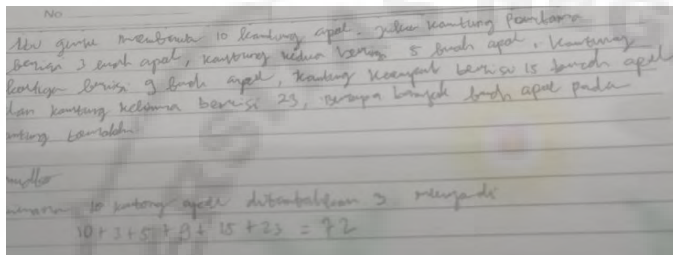 No
Ibu guru membawa 10 kantung apel. jika kantung pertama
berisi 3 buah apel, kantung kedua berisi 5 buah apel, kantung
ketiga berisi 9 buah apel, kantung keempat berisi 15 buah apel
dan kantung kelima berisi 23, berapa banyak buah apel pada
10 kantong apel ditambahkan 3 menjadi
10 + 3 + 5 + 9 + 15 + 23 = 72